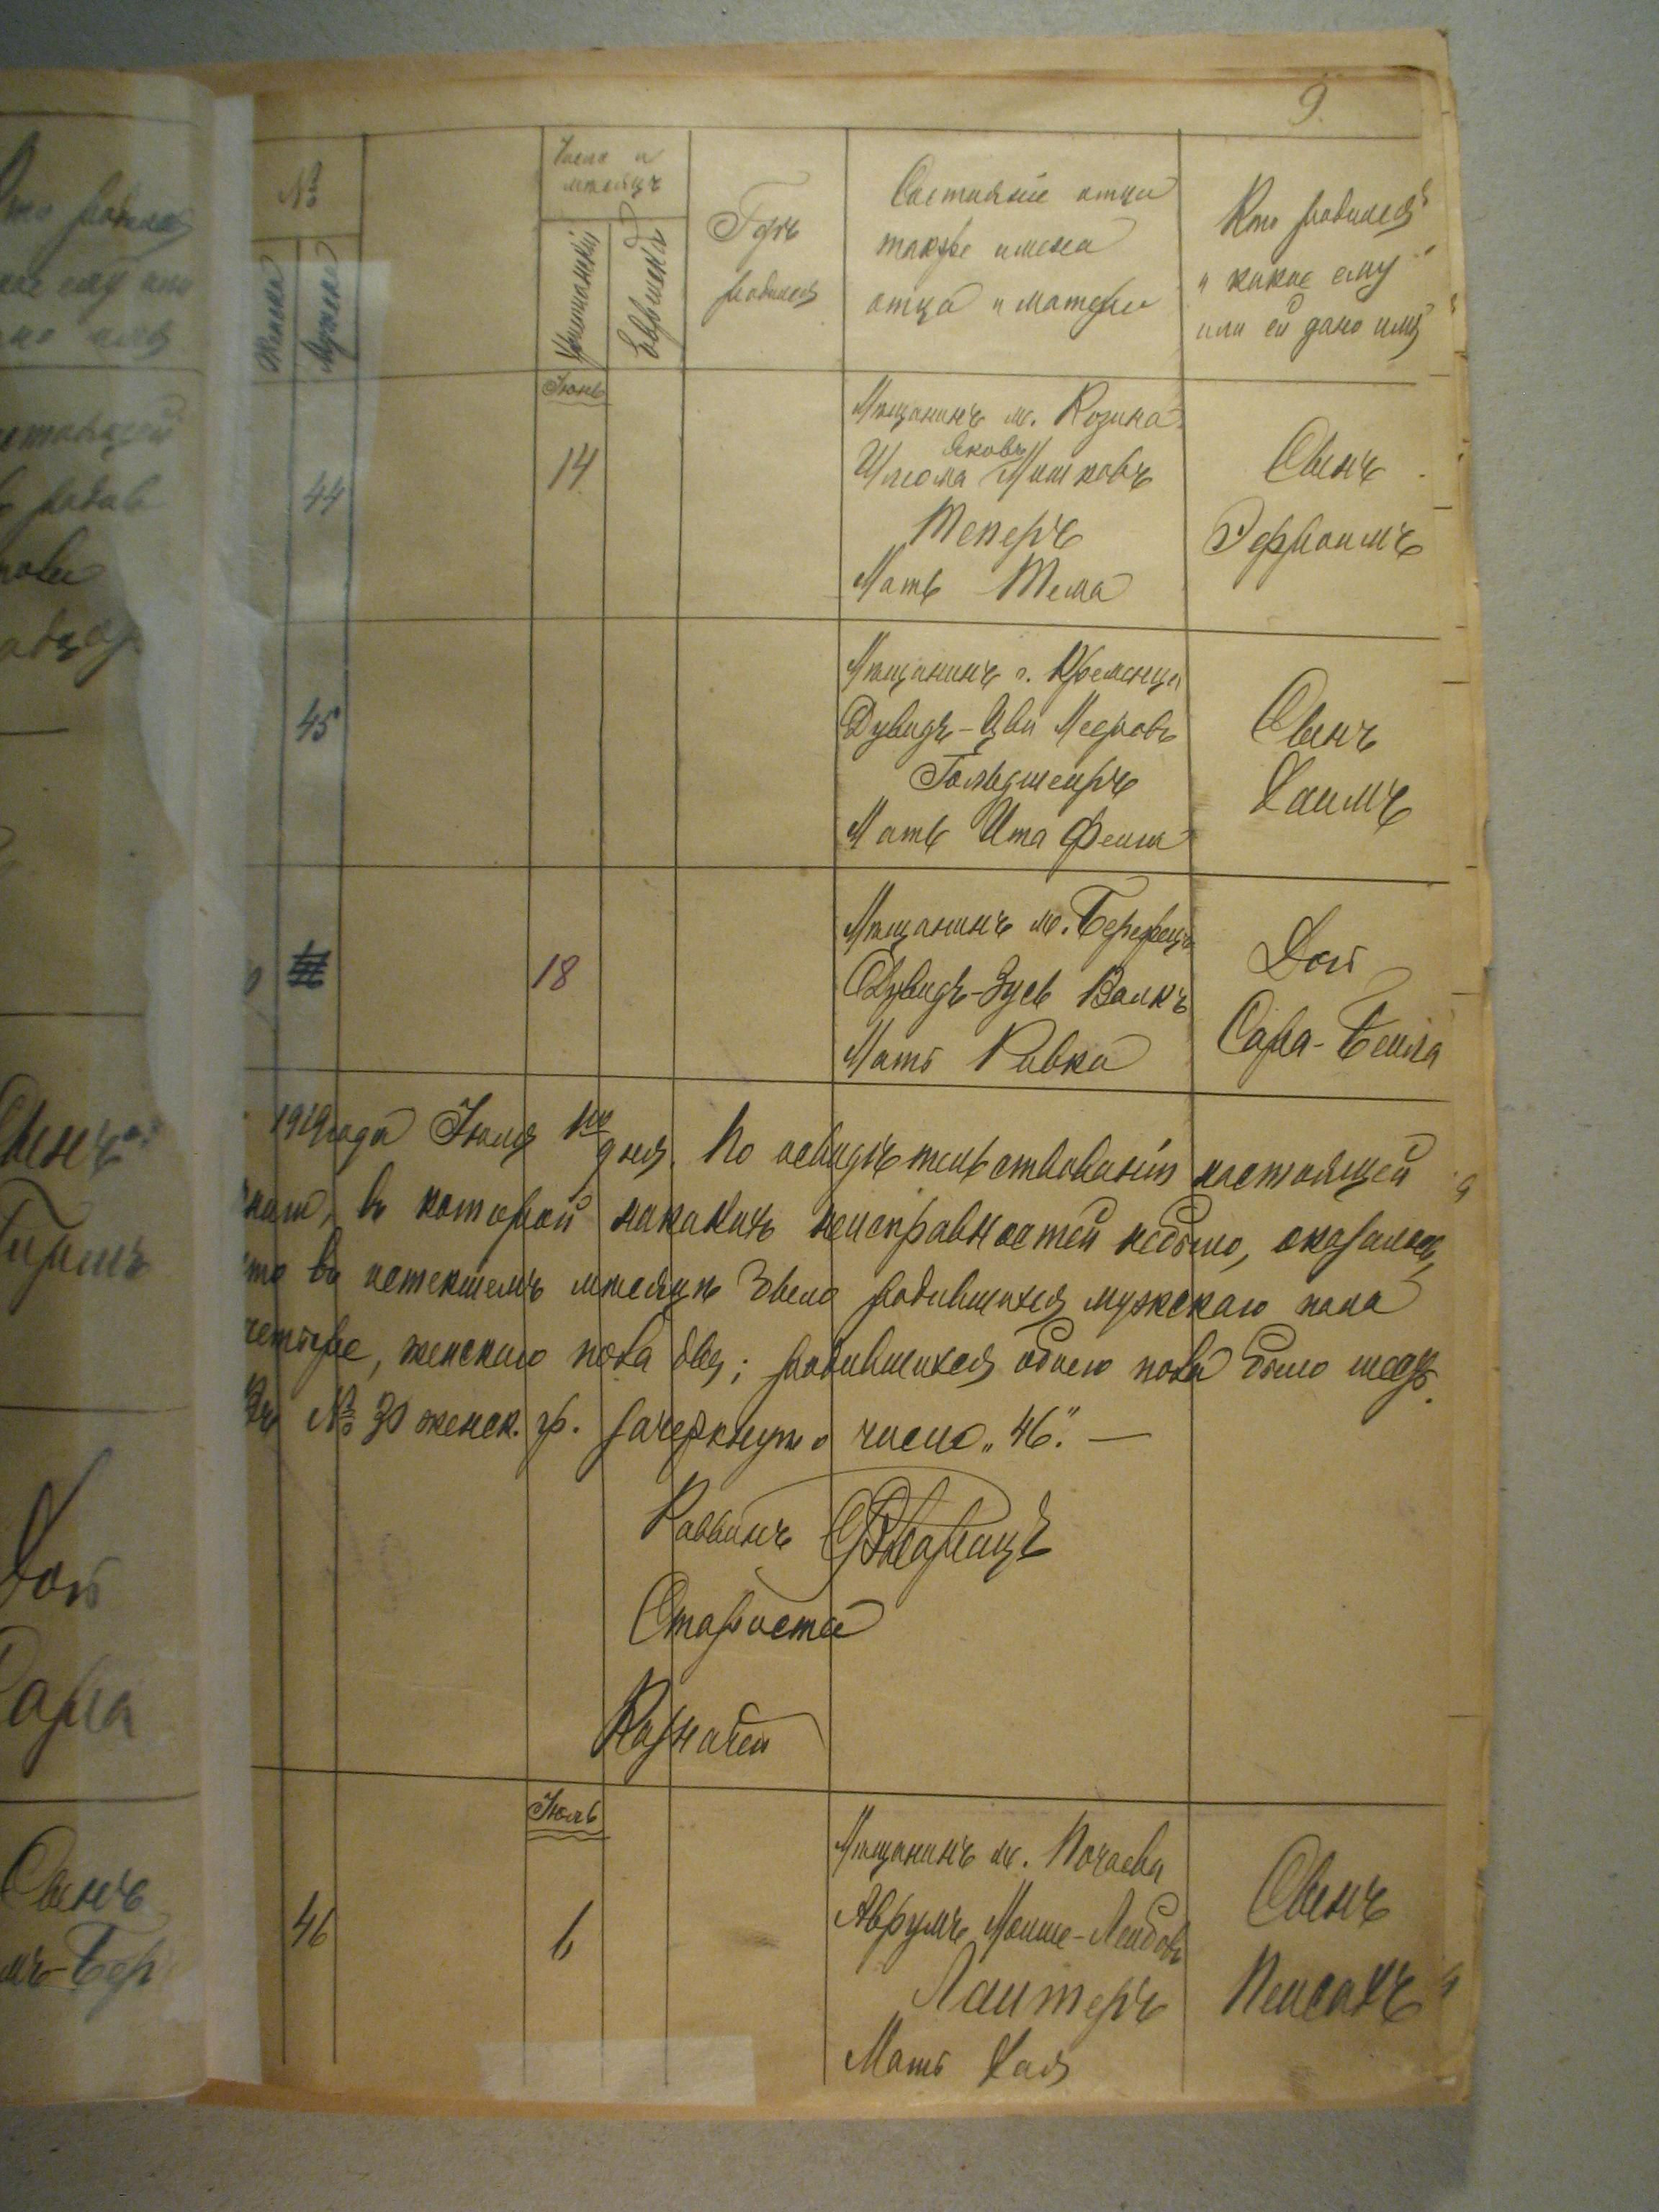 9.
№
Женска
Мужска
Число и
мѣсяцъ
Христіанскій
Еврейскій
Гдѣ
родился
Состояніе отца
также имена
отца и матери
Кто родился
и какое ему
или ей дано имя
Іюнь
44
14
Мѣщанинъ м. Козина
Яковъ
Шлома Мошковъ
Теперъ
Мать Тема
Сынъ
Эфроимъ
45
Мѣщанинъ г. Кременца
Дувидъ-Цви Мееровъ
Гольдшеиръ
Мать Ита Феига
Сынъ
Хаимъ
18
Мѣщанинъ м. Бережецъ
Дувидъ-Зусь Валкъ
Мать Ривка
Доч
Сара-Беила
1919 года Іюля 1го дня. По освидѣтельствованіи настоящей
въ которой никакихъ неисправностей небыло, оказалось,
что въ истекшемъ мѣсяцѣ было родившихся мужскаго пола
четыре, женскаго пола два; родившихся обоего пола было шесть.
Въ № 30 женск. гр. зачеркнуто число „46“. —
Раввинъ
Староста
Казначей
Іюль
46
6
Мѣщанинъ м. Почаева
Аврумъ Моише-Леибовъ
Лаитеръ
Мать Хая
Сынъ
Пеисахъ
Сынъ
Доч
Сара
Сынъ
мъ-Бер